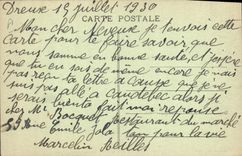 Dreux 19 juillet 1930
CARTE POSTALE
Mon cher Neveue je t'envois cette
Carte pour te faire savoir que
nous somme en bonne santé, et j'espère
que tu en sois de même encore je n'ais
pas reçu ta lettre à cause que je ne
suis pas allé à Caudebec alors je
serais fait moi reponse
chez Mr Bocquet restaurant du marché
Rue Emile Zola ton pour la vie
Marcelin